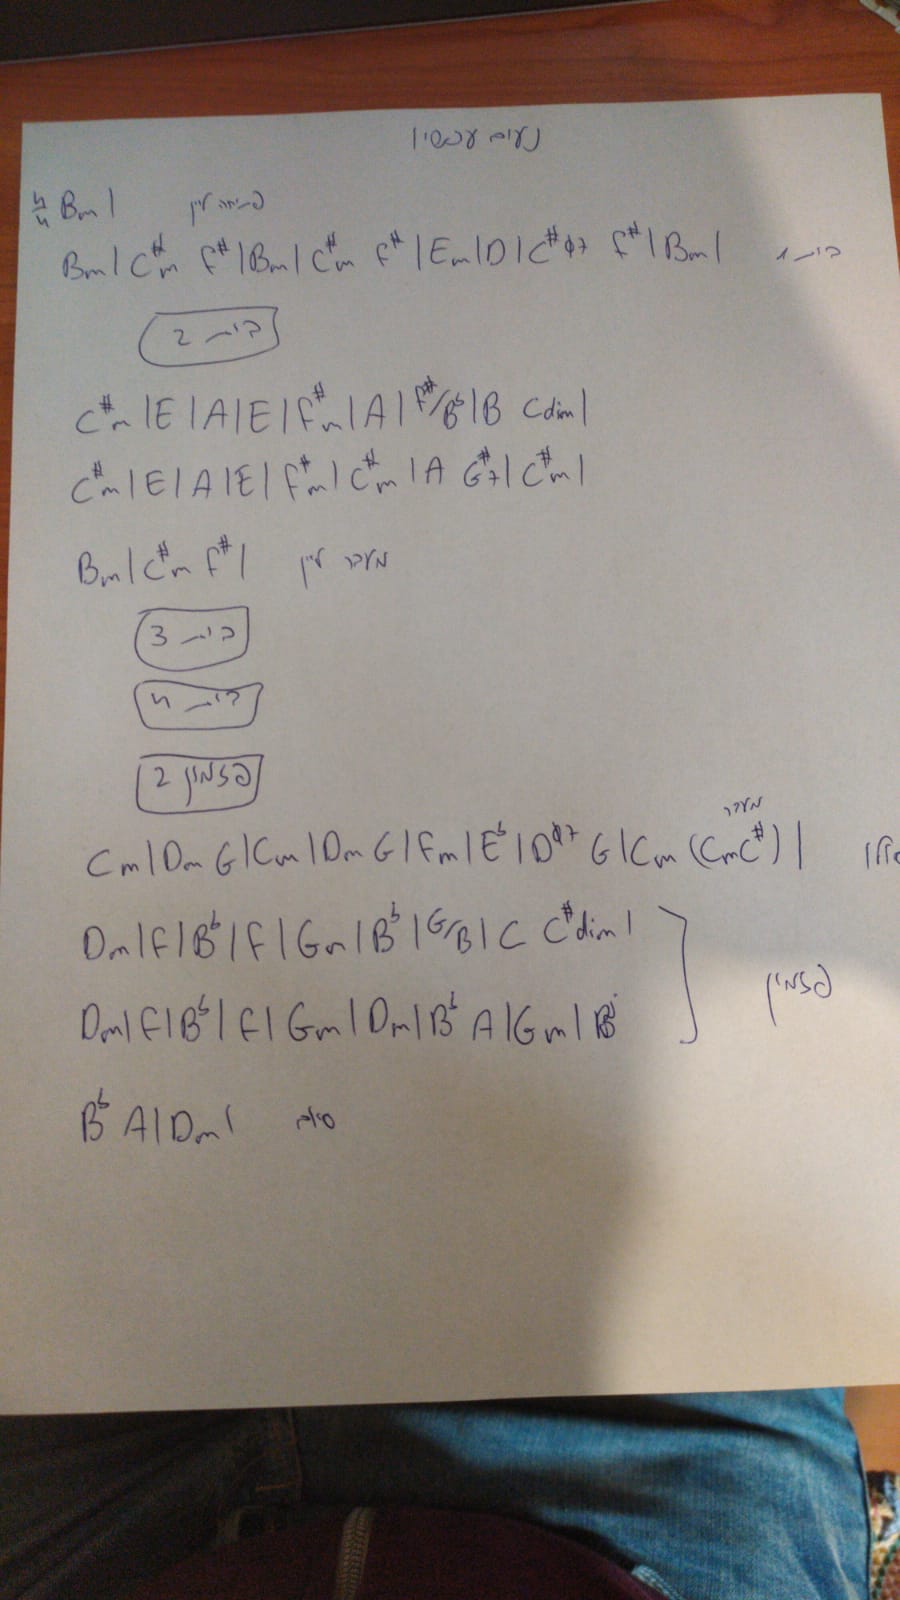 נעים עכשיו
4/4 Bm | פתיחה ליין
Bm | C#m F# | Bm | C#m F# | Em | D | C#ø7 F# | Bm | בית 1
בית 2
C#m | E | A | E | F#m | A | F#/Bb | B Cdim |
C#m | E | A | E | F#m | C#m | A G#7 | C#m |
Bm | C#m F# | מעבר ליין
בית 3
בית 4
פזמון 2
מעבר
Cm | Dm G | Cm | Dm G | Fm | Eb | Dø7 G | Cm (Cm C#) |
Dm | F | Bb | F | Gm | Bb | G/B | C C#dim |
פזמון
Dm | F | Bb | F | Gm | Dm | Bb A | Gm |
Bb A | Dm | סיום